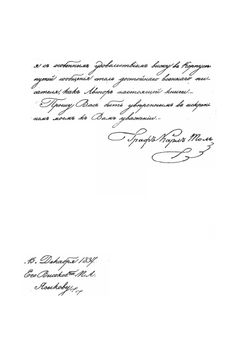 я съ особеннымъ удовольствіемъ вижу въ Корпусѣ
путей сообщенія столь достойнаго военнаго пи-
сателя, какъ Авторъ настоящей книги.
Прошу Васъ быть увѣреннымъ въ искрен-
немъ моемъ къ Вамъ уваженіи.
Графъ Карлъ Толь
Декабря 1837.
Его Высокоб. П.А.
Языкову